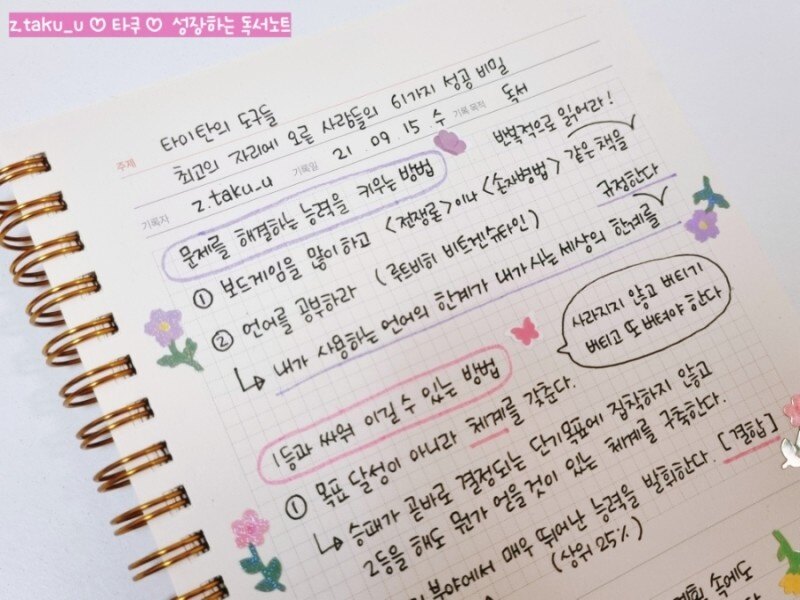 z.taku_u ♡ 타쿠 ♡ 성장하는 독서노트
타이탄의 도구들
주제 최고의 자리에 오른 사람들의 61가지 성공 비밀
기록자 z.taku_u 기록일 21 09 15 수 기록 목적 독서
문제를 해결하는 능력을 키우는 방법
반복적으로 읽어라!
① 보드게임을 많이 하고 <전쟁론>이나 <손자병법> 같은 책을
② 언어를 공부하라 (루트비히 비트겐슈타인)
↳ 내가 사용하는 언어의 한계가 내가 사는 세상의 한계를
규정한다
1등과 싸워 이길 수 있는 방법
사라지지 않고 버티기
버티고 또 버텨야 한다
① 목표 달성이 아니라 체계를 갖춘다.
↳ 승패가 곧바로 결정되는 단기목표에 집착하지 않고
2등을 해도 뭔가 얻을 것이 있는 체계를 구축한다.
분야에서 매우 뛰어난 능력을 발휘한다. [결합]
(상위 25%)
속에도